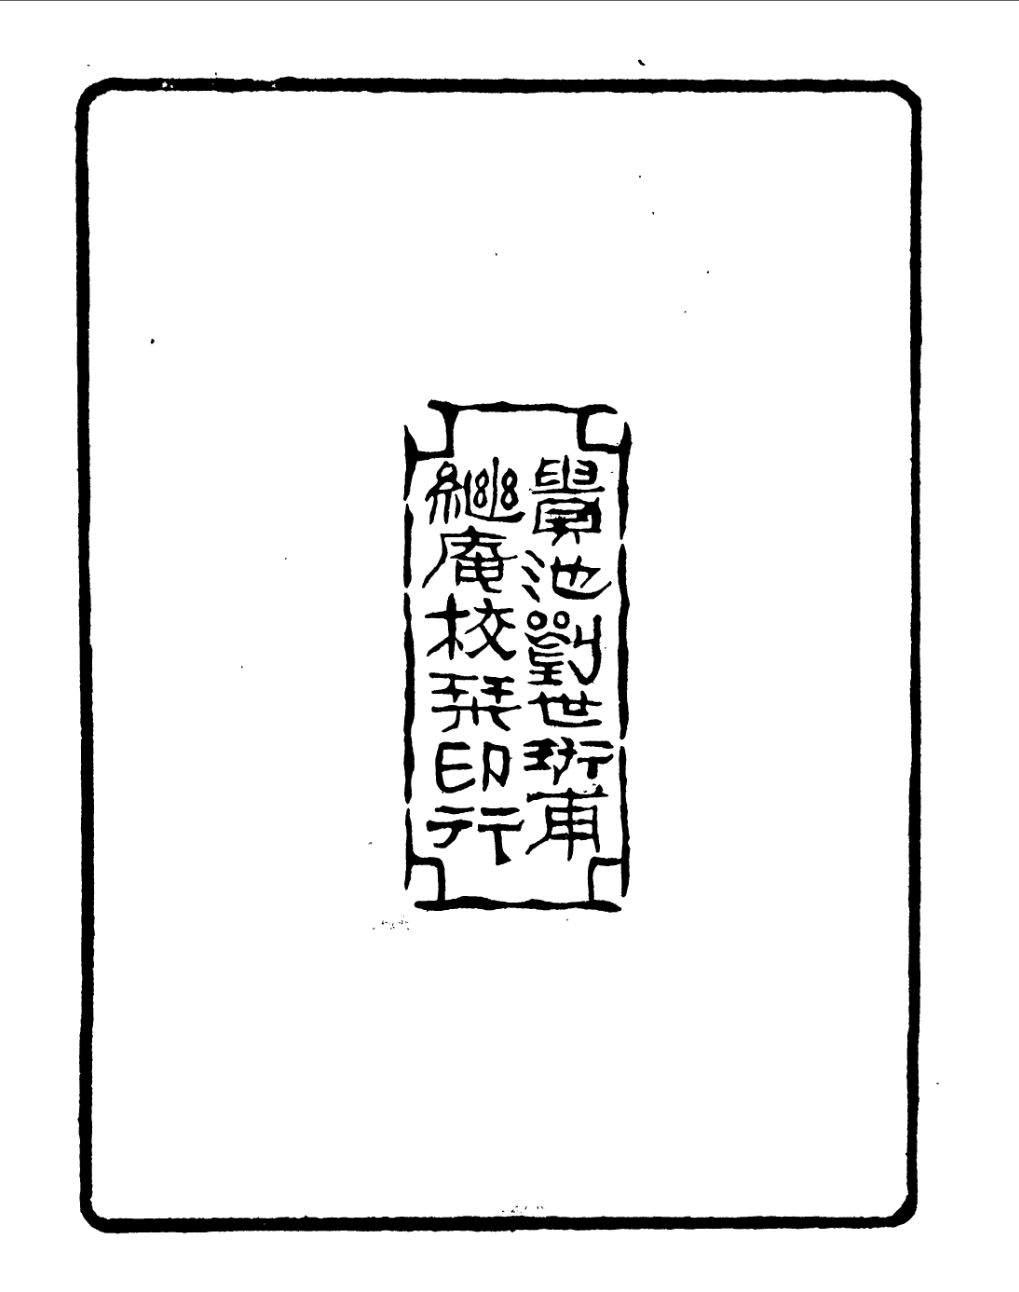 貴池劉世珩甫
繼庵校栞印行